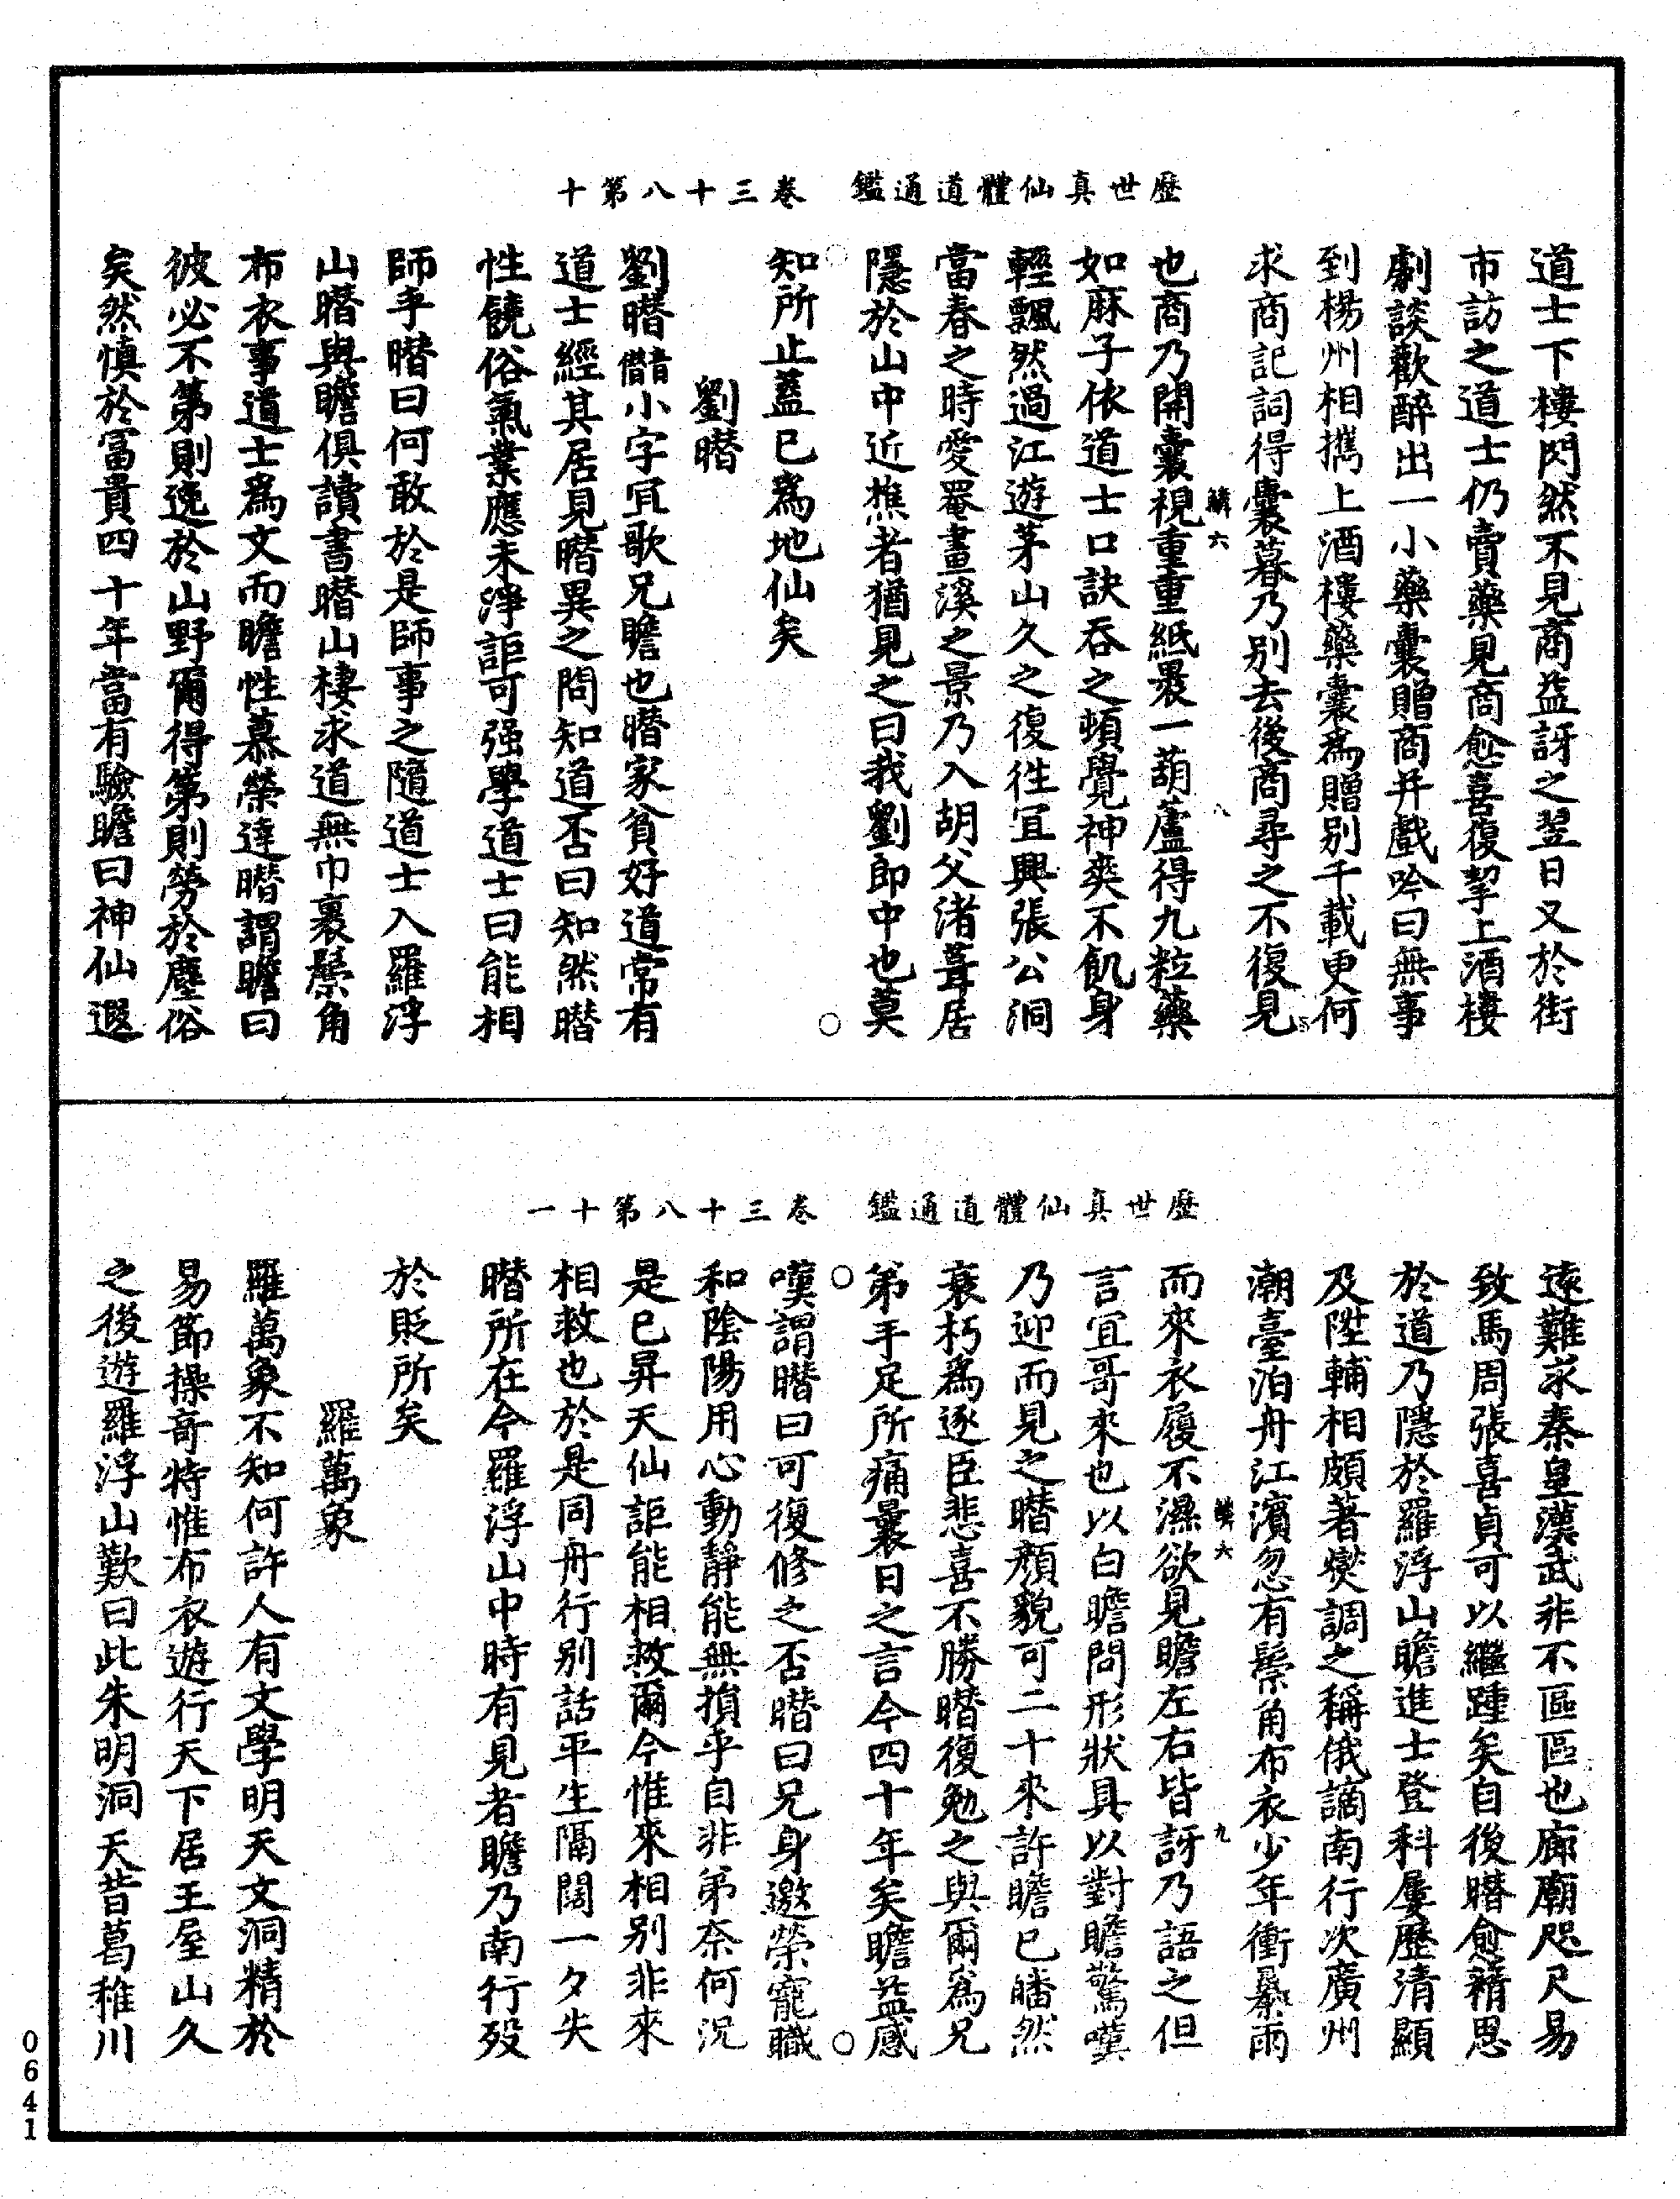 歷世真仙體道通鑑　卷三十八第十
道士下樓閃然不見商益訝之翌日又於街
市訪之道士仍賣藥見商愈喜復挈上酒樓
劇談歡醉出一小藥囊贈商并戲吟曰無事
到楊州相攜上酒樓藥囊為贈別千載更何
求商記詞得囊暮乃別去後商尋之不復見
鱗六
八
也商乃開囊視重重紙裹一葫蘆得九粒藥
如麻子依道士口訣吞之頓覺神爽不飢身
輕飄然過江遊茅山久之復徃宜興張公洞
當春之時愛罨畫溪之景乃入胡父渚葺居
隱於山中近樵者猶見之曰我劉郎中也莫
知所止蓋已為地仙矣
劉㬱
劉㬱僭小字宜歌兄瞻也㬱家貧好道常有
道士經其居見㬱異之問知道否曰知然㬱
性饒俗氣業應未淨詎可强學道士曰能相
師乎㬱曰何敢於是師事之隨道士入羅浮
山㬱與瞻俱讀書㬱山棲求道無巾裹鬟角
布衣事道士為文而瞻性慕榮達㬱謂瞻曰
彼必不第則逸於山野爾得第則勞於塵俗
矣然慎於富貴四十年當有驗瞻曰神仙遐
歷世真仙體道通鑑　卷三十八第十一
遠難求秦皇漢武非不區區也廊廟咫尺易
致馬周張喜貞可以繼踵矣自後㬱愈精思
於道乃隱於羅浮山瞻進士登科屢歷清顯
及陞輔相頗著燮調之稱俄謫南行次廣州
潮臺泊舟江濱忽有鬟角布衣少年衝暴雨
鱗六
九
而來衣履不濕欲見瞻左右皆訝乃語之但
言宜哥來也以白瞻問形狀具以對瞻驚嘆
乃迎而見之㬱顏貌可二十來許瞻已皤然
衰朽為逐臣悲喜不勝㬱復勉之與爾為兄
弟手足所痛曩日之言今四十年矣瞻益感
嘆謂㬱曰可復修之否㬱曰兄身邀榮寵職
和陰陽用心動靜能無損乎自非弟奈何況
是已昇天仙詎能相救爾今惟來相別非來
相救也於是同舟行別話平生隔闊一夕失
㬱所在今羅浮山中時有見者瞻乃南行殁
於貶所矣
羅萬象
羅萬象不知何許人有文學明天文洞精於
易節操奇特惟布衣遊行天下居王屋山久
之後遊羅浮山歎曰此朱明洞天昔葛稚川
0641